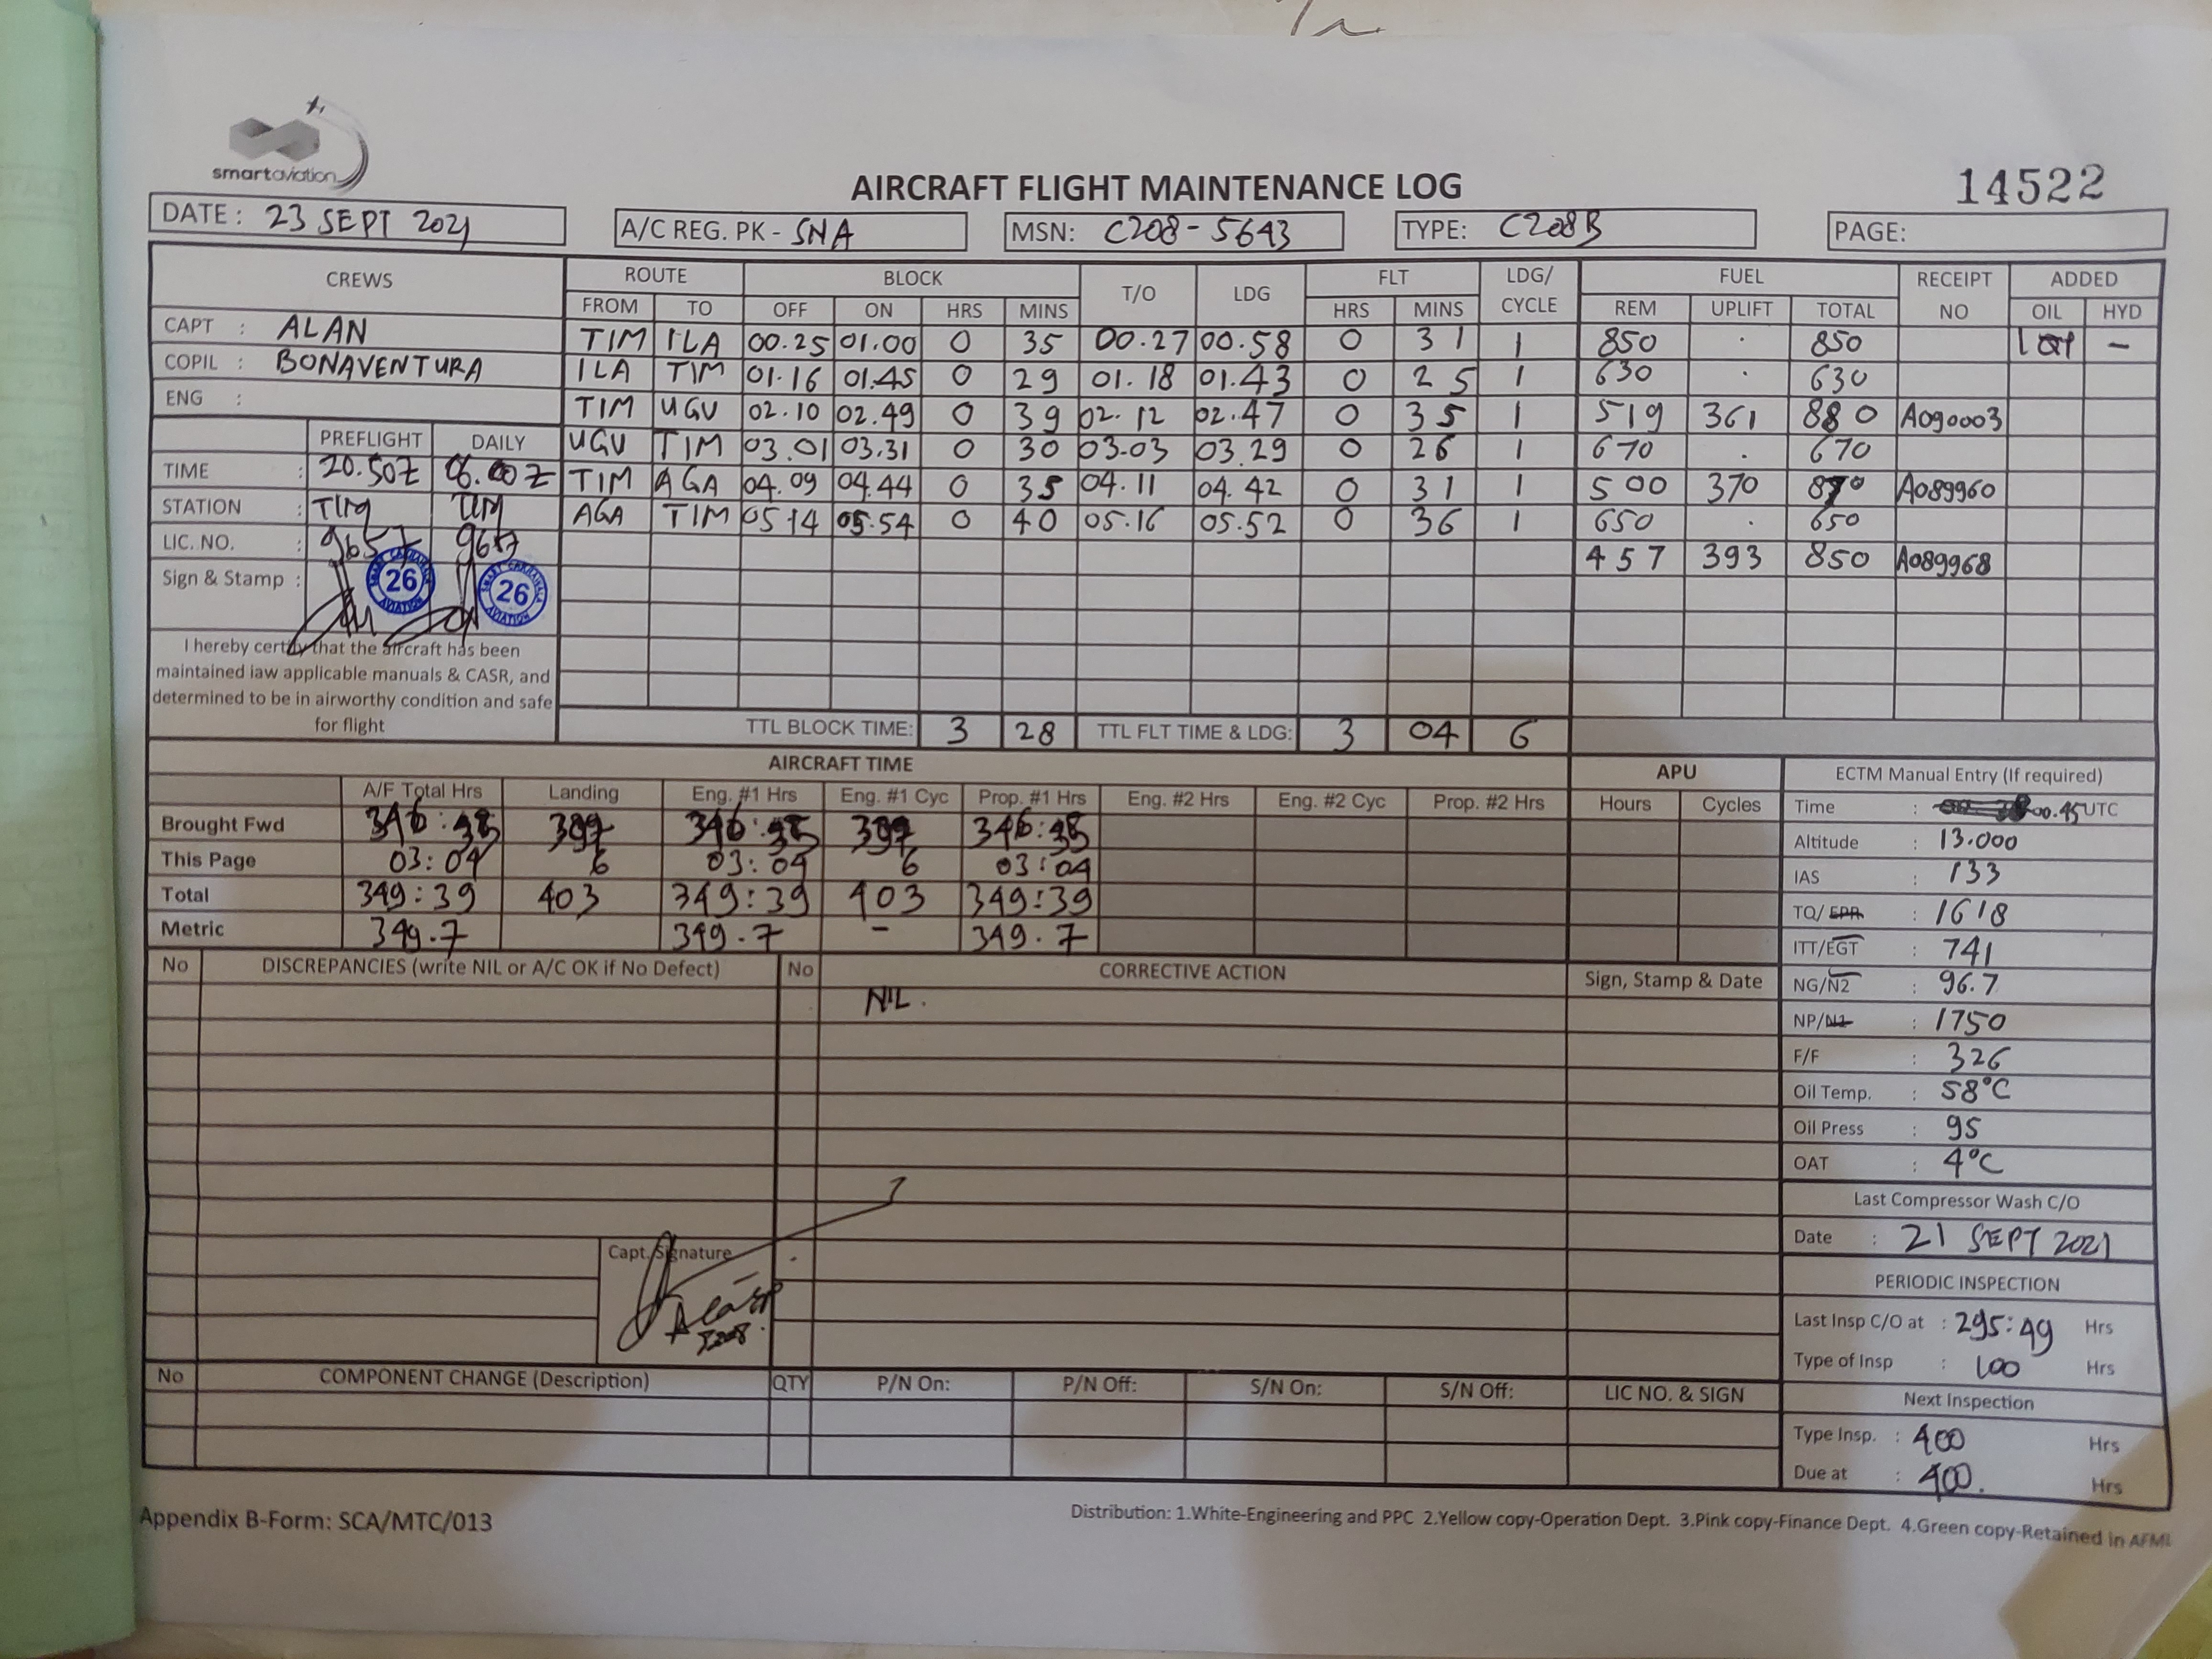 smartaviation
AIRCRAFT FLIGHT MAINTENANCE LOG
14522
DATE : 23 SEPT 2021
A/C REG. PK - SNA
MSN: C208-5643
TYPE: C208B
PAGE:
CREWS ROUTE BLOCK T/O LDG FLT LDG/ CYCLE FUEL RECEIPT NO ADDED
FROM TO OFF ON HRS MINS HRS MINS REM UPLIFT TOTAL OIL HYD
CAPT : ALAN
COPIL : BONAVENTURA
ENG :
TIM ILA 00.25 01.00 0 35 00.27 00.58 0 31 1 850 . 850 1 –
ILA TIM 01.16 01.45 0 29 01.18 01.43 0 25 1 630 . 630
TIM UGU 02.10 02.49 0 39 02.12 02.47 0 35 1 519 361 880 A090003
UGU TIM 03.01 03.31 0 30 03.03 03.29 0 26 1 670 . 670
TIM AGA 04.09 04.44 0 35 04.11 04.42 0 31 1 500 370 870 A089960
AGA TIM 05.14 05.54 0 40 05.16 05.52 0 36 1 650 . 650
457 393 850 A089968
PREFLIGHT DAILY
TIME : 20.50Z 06.00Z
STATION : TIM TIM
LIC. NO. : 9657 9657
Sign & Stamp :
26
AVIATION
26
AVIATION
I hereby certify that the aircraft has been
maintained iaw applicable manuals & CASR, and
determined to be in airworthy condition and safe
for flight
TTL BLOCK TIME: 3 28 TTL FLT TIME & LDG: 3 04 6
AIRCRAFT TIME
A/F Total Hrs Landing Eng. #1 Hrs Eng. #1 Cyc Prop. #1 Hrs Eng. #2 Hrs Eng. #2 Cyc Prop. #2 Hrs
Brought Fwd 346:35 397 346:35 397 346:35
This Page 03:04 6 03:04 6 03:04
Total 349:39 403 349:39 403 349:39
Metric 349.7 349.7 – 349.7
APU
Hours Cycles
ECTM Manual Entry (If required)
Time : 00.45 UTC
Altitude : 13.000
IAS : 133
TQ/EPR : 1618
ITT/EGT : 741
NG/N2 : 96.7
NP/N1 : 1750
F/F : 326
Oil Temp. : 58°C
Oil Press : 95
OAT : 4°C
Last Compressor Wash C/O
Date : 21 SEPT 2021
PERIODIC INSPECTION
Last Insp C/O at : 295:49 Hrs
Type of Insp : 100 Hrs
Next Inspection
Type Insp. : 400 Hrs
Due at : 400. Hrs
No DISCREPANCIES (write NIL or A/C OK if No Defect) No CORRECTIVE ACTION Sign, Stamp & Date
NIL.
Capt. Signature
No COMPONENT CHANGE (Description) QTY P/N On: P/N Off: S/N On: S/N Off: LIC NO. & SIGN
Appendix B-Form: SCA/MTC/013
Distribution: 1.White-Engineering and PPC 2.Yellow copy-Operation Dept. 3.Pink copy-Finance Dept. 4.Green copy-Retained in AFML